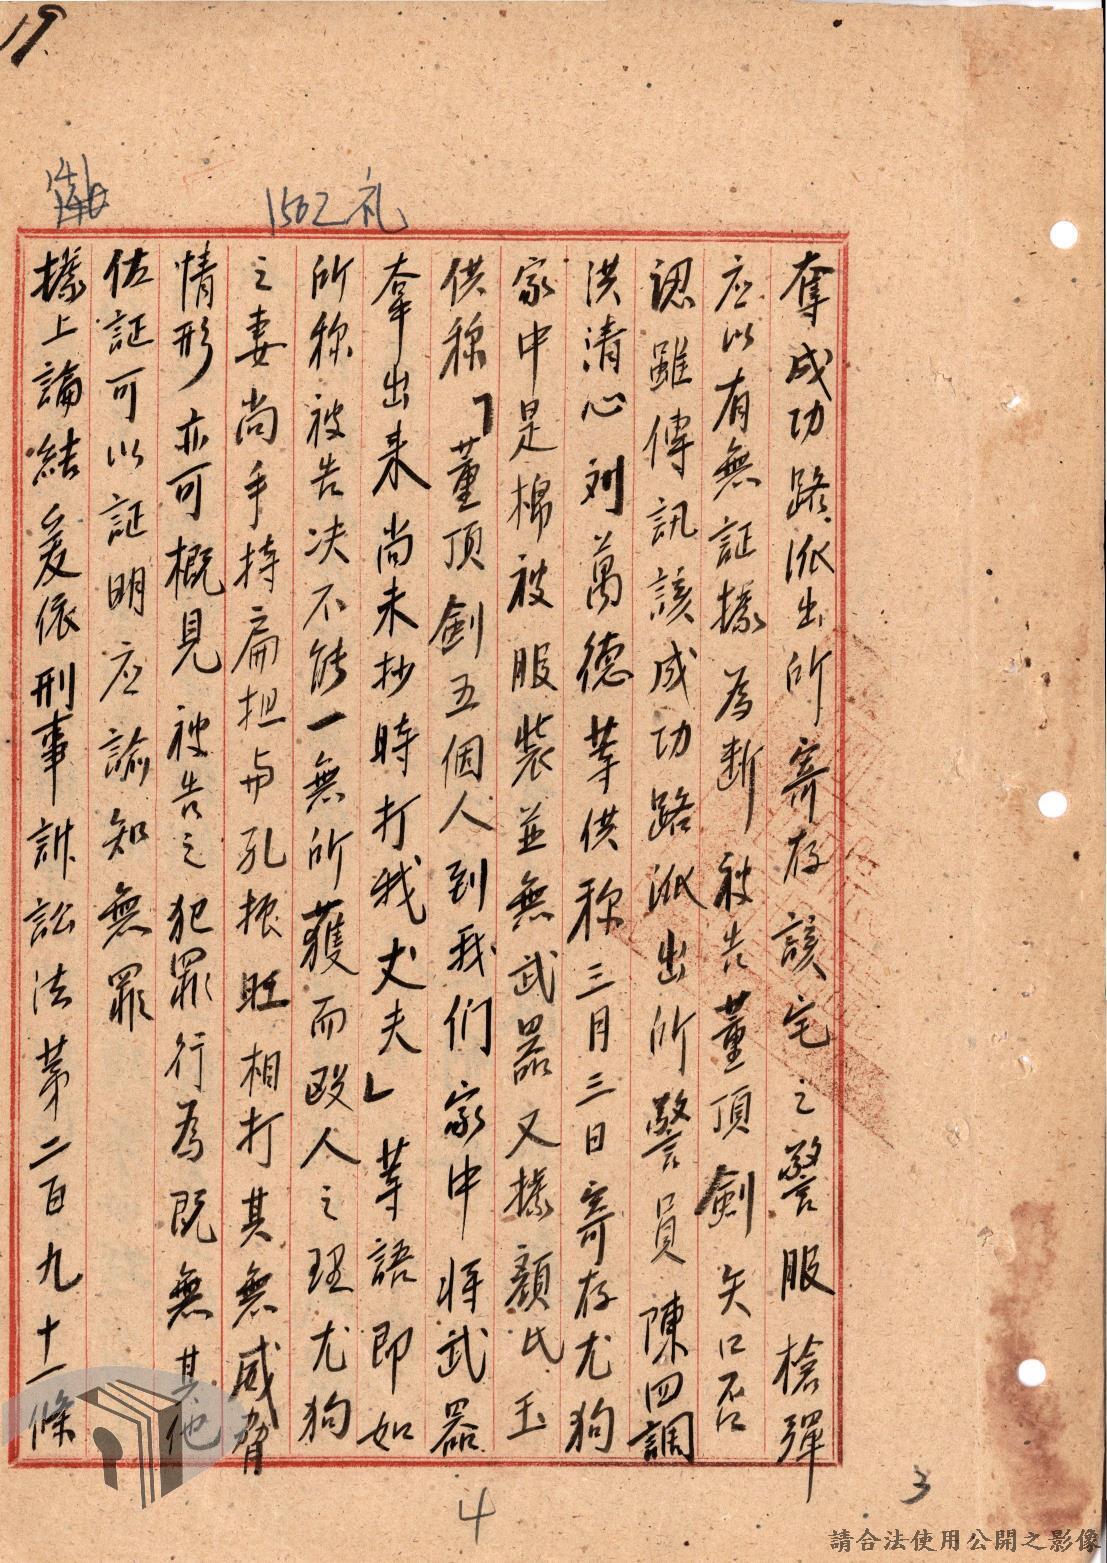 19
1502礼
奪成功路派出所寄存該宅之警服槍彈
应以有無証據為断被告董頂劍矢口否
認雖傳訊該成功路派出所警員陳四調
洪清心刘萬德等供称三月三日寄存尤狗
家中是棉被服裝並無武器又據顏氏玉
供称「董頂劍五個人到我们家中将武器
拿出来尚未抄時打我丈夫」等語即如
所称被告决不能一無所獲而毆人之理尤狗
之妻尚手持扁担与孔振旺相打其無威脅
情形亦可概見被告之犯罪行為既無其他
佐証可以証明应諭知無罪
據上論結爰依刑事訴訟法第二百九十一條
4
3
請合法使用公開之影像